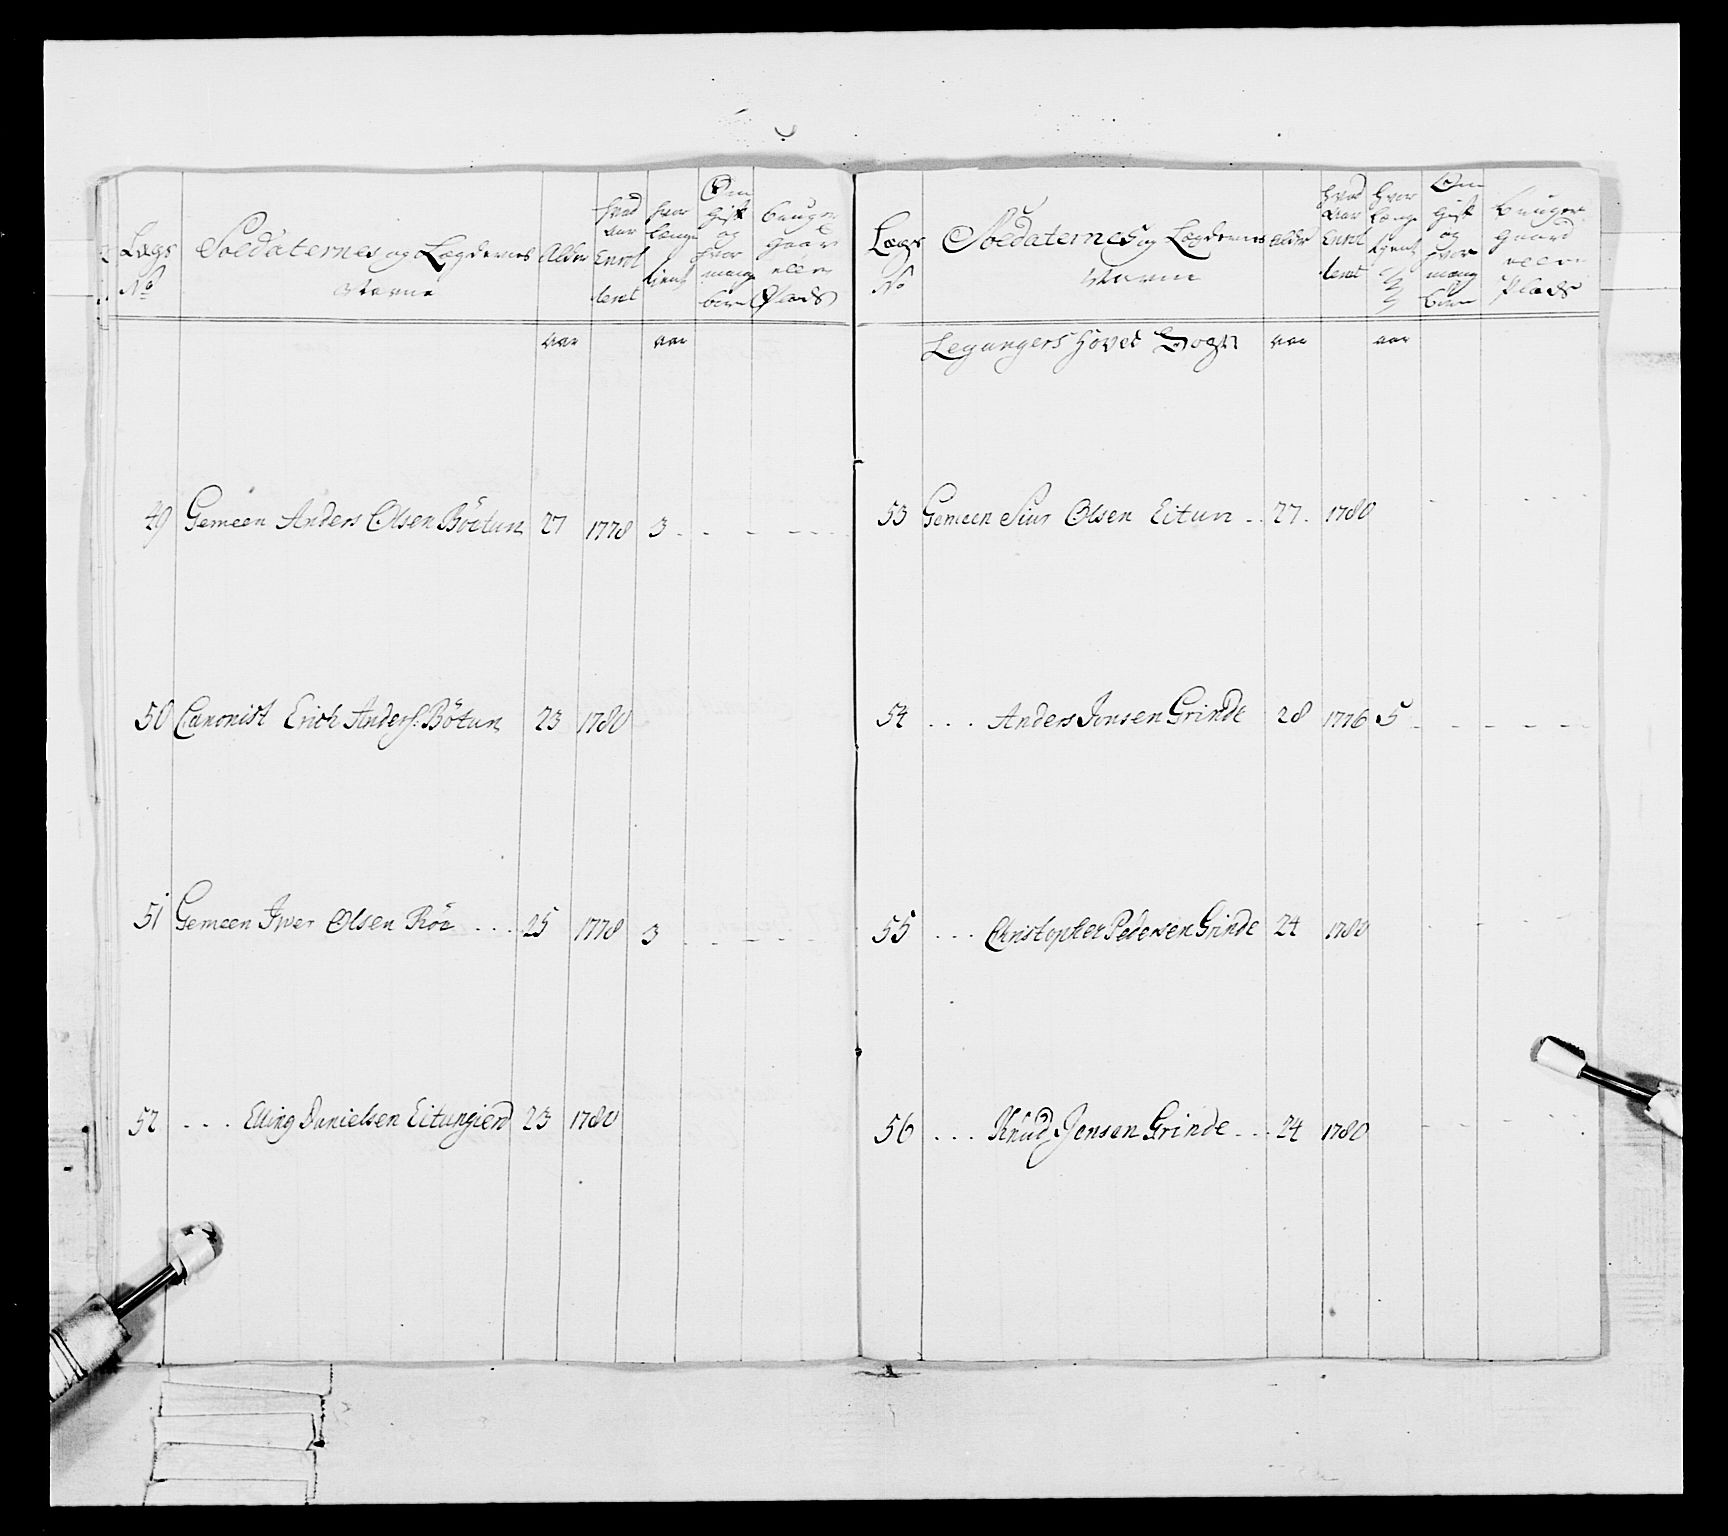 Lægs No
Soldaternes og Lægdernes Navne
Alder
hvad aar Enrolleret
hvor længe tjent
Om gift og hvor mange børn
bruger gaard eller Plads
aar aar
49 Gemeen Anders Olsen Böetun 27 1778 3
50 Canonist Erich Anders: Bötun 23 1780
51 Gemeen Iver Olsen Röe 25 1778 3
52 Elling Danielsen Eitungierd 23 1780
Lægs No
Soldaternes og Lægdernes Navne
Alder
hvad aar Enrolleret
hvor længe tjent
Om gift og hvor mange børn
bruger gaard eller Plads
Leyangers Hoved Sogn aar aar
53 Gemeen Siur Olsen Eitun 27 1780
54 Anders Jonsen Grinde 28 1776 5
55 Christopher Pedersen Grinde 24 1780
56 Knud Jensen Grinde 24 1780